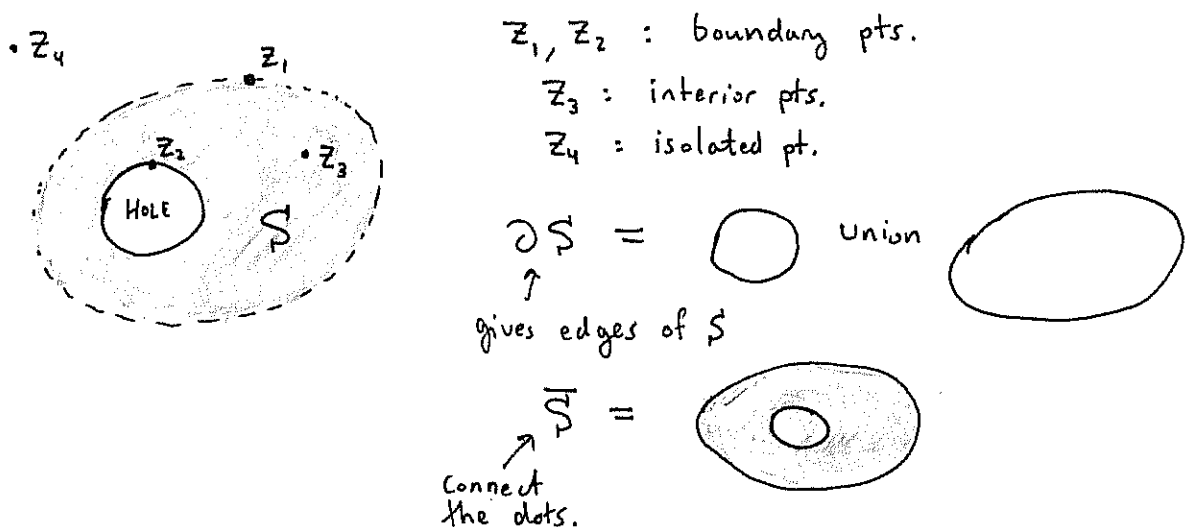 · Z₄
Z₁
Z₂
· Z₃
HOLE
S
Z₁, Z₂ : boundary pts.
Z₃ : interior pts.
Z₄ : isolated pt.
∂S = union
gives edges of S
S̅ =
Connect
the dots.